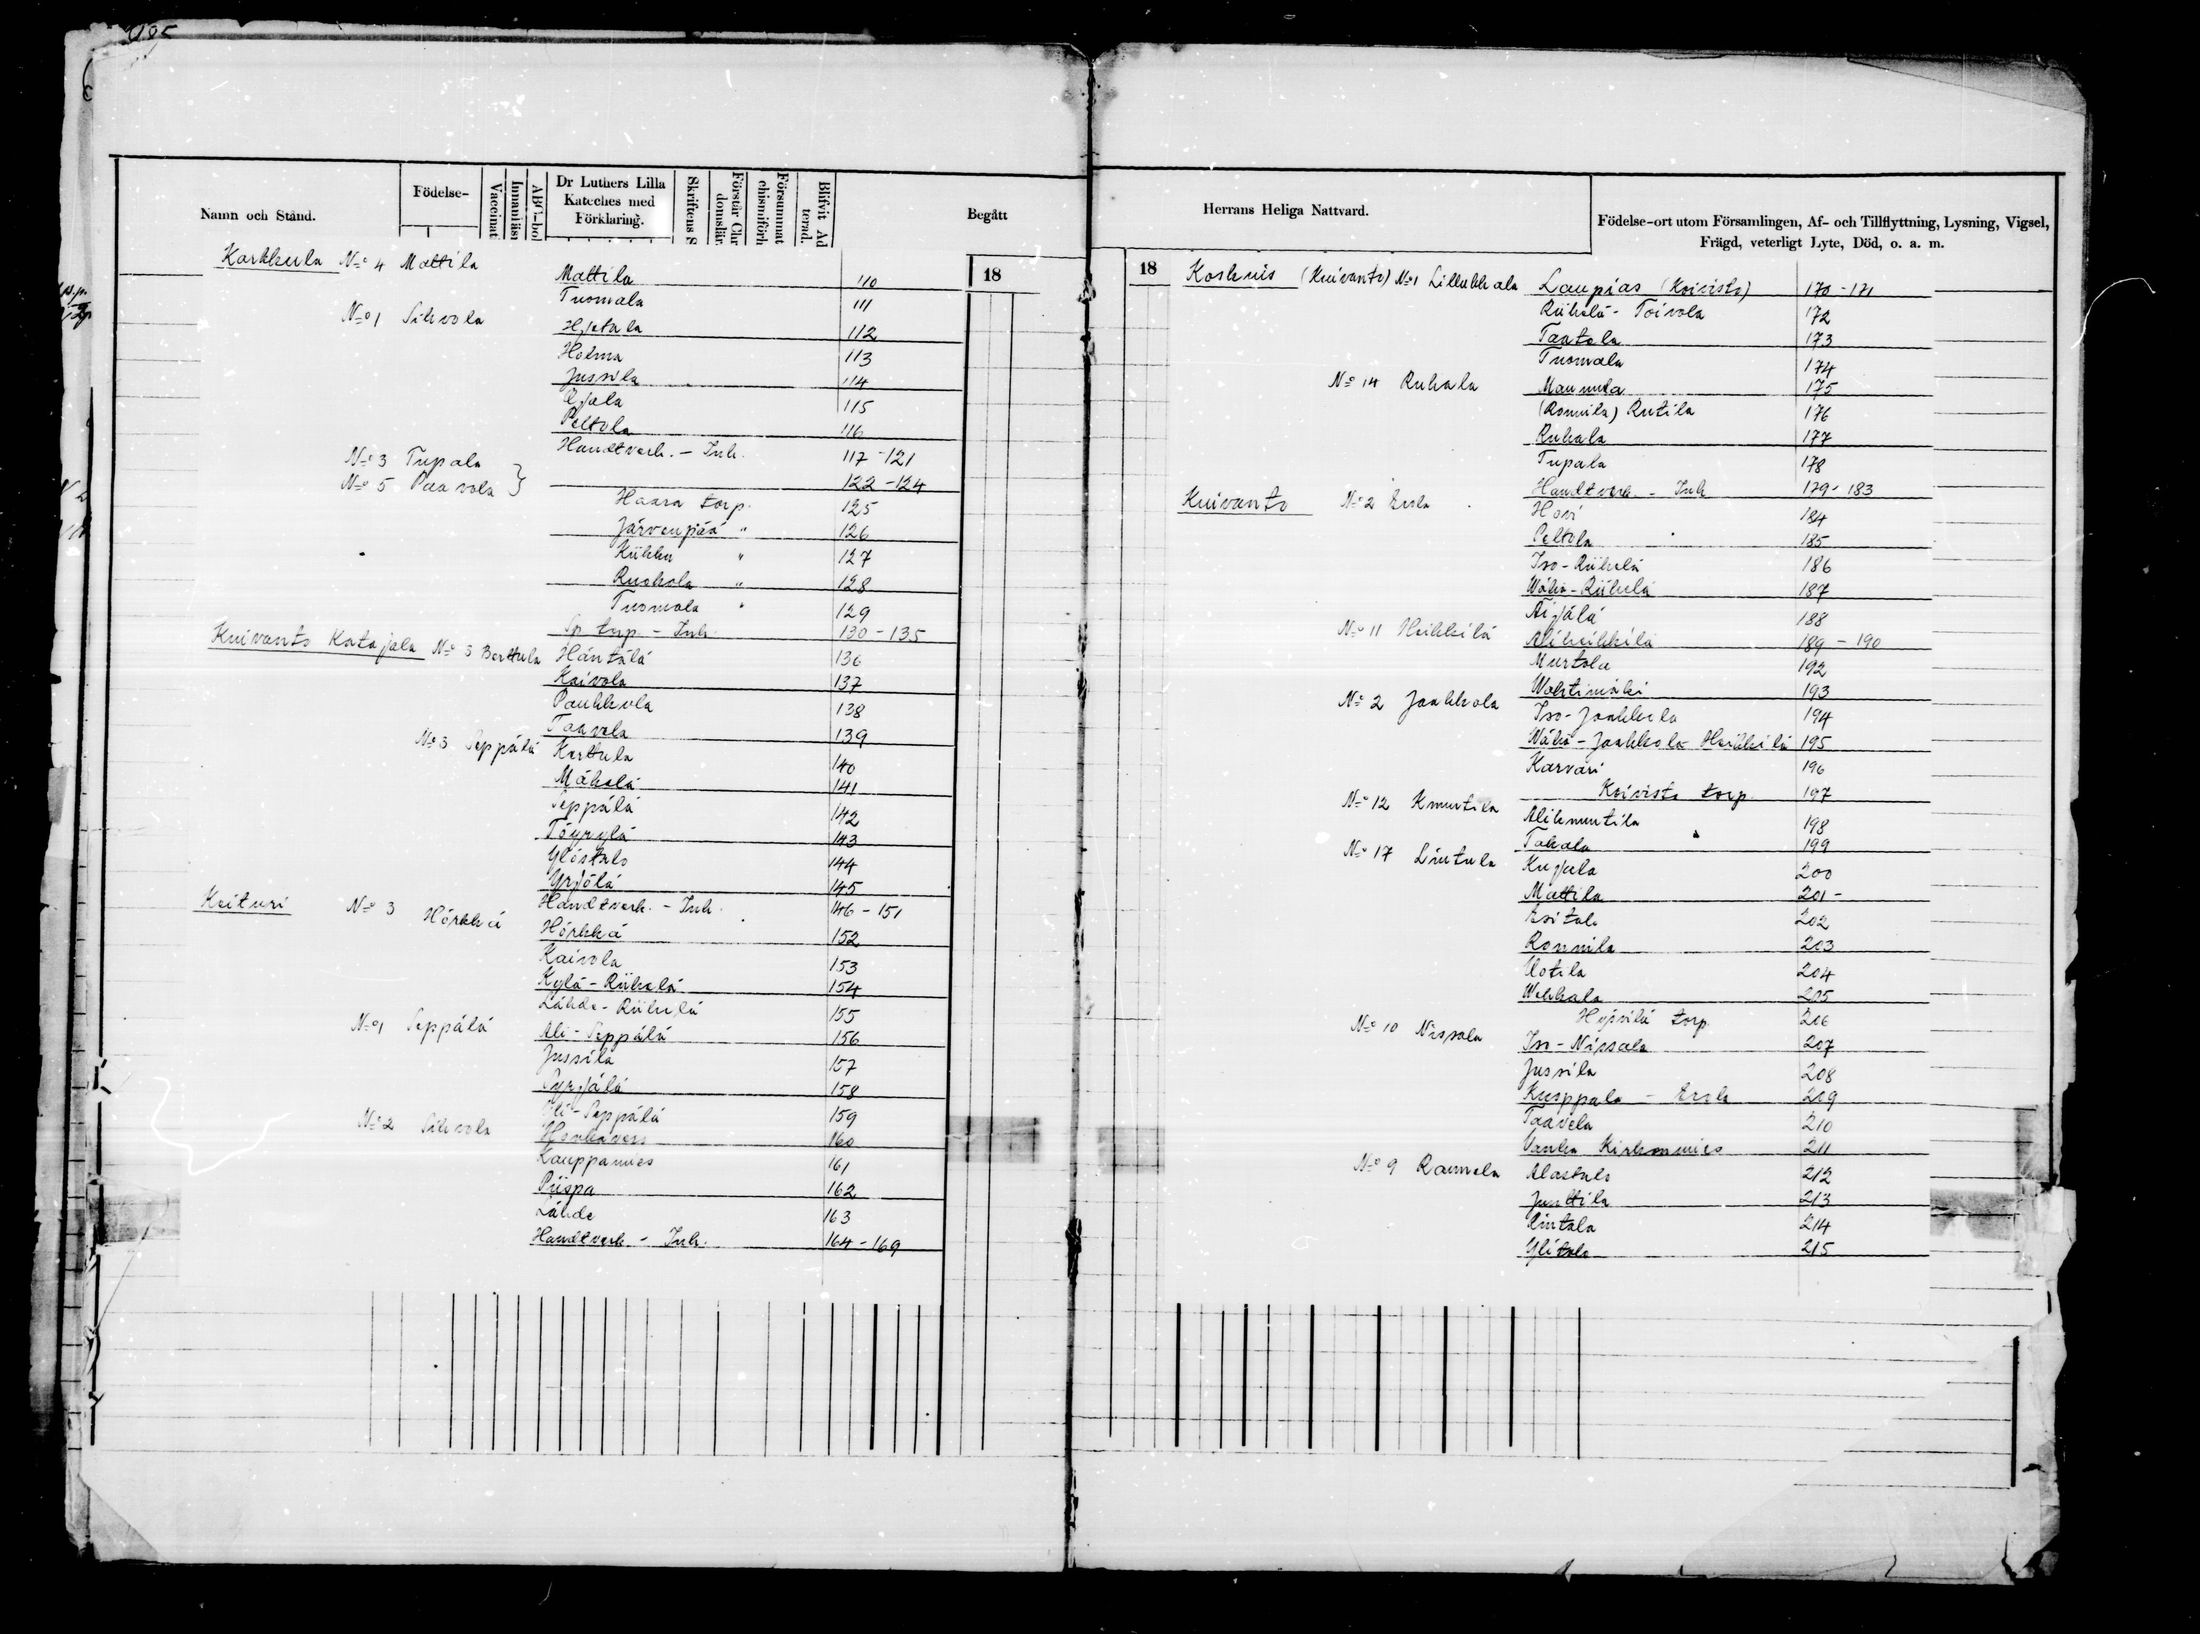 Namn och Stånd.
Födelse-
Vaccinat
ABC-bok
Dr Luthers Lilla
Kateches med
Förklaring.
Skriftens S
Förstår Chr
domslär
Försummat
chismiförh
Blifvit Ad
terad.
Begått
18
Karkkula No 4 Mattila Mattila 110
Tuomala 111
No 1 Sihvola Hjetala 112
Holma 113
Jussila 114
Ojala 115
Peltola 116
No 3 Tupala Handtverk. - Inh. 117-121
No 5 Paavola } 122-124
Haara torp. 125
Järvenpää " 126
Kiikku " 127
Ruohola " 128
Tuomala " 129
Sp torp. - Inh. 130-135
Kuivanto Katajala No 3 Berttula Häntälä 136
Kaivola 137
Paukkola 138
Taavela 139
No 3 Seppälä Karttula 140
Mäkelä 141
Seppälä 142
Töyrylä 143
Ylöstalo 144
Yrjölä 145
Handtverk. - Inh. 146-151
Keituri No 3 Hörkkä Hörkkä 152
Kaivola 153
Kylä-Riihelä 154
Lähde-Riihelä 155
No 1 Seppälä Ali-Seppälä 156
Jussila 157
Syrjälä 158
Yli-Seppälä 159
No 2 Sihvola 160
Kauppamies 161
Piispa 162
Lähde 163
Handtverk. - Inh. 164-169
Herrans Heliga Nattvard.
Födelse-ort utom Församlingen, Af- och Tillflyttning, Lysning, Vigsel,
Frägd, veterligt Lyte, Död, o. a. m.
18
Koskuis (Kuivanto) No 1 Lillukkala Laupias (Koivisto) 170-171
Riihelä-Toivola 172
Taatola 173
Tuomala 174
No 14 Ruhala Maunula 175
(Ronnila) Rutila 176
Ruhala 177
Tupala 178
Handtverk. - Inh 179-183
Kuivanto No 2 Erola Hovi 184
Peltola 185
Iso-Riihelä 186
Wähä-Riihelä 187
Äijälä 188
No 11 Heikkilä Aliheikkilä 189-190
Murtola 192
Wahtimäki 193
No 2 Jaakkola Iso-Jaakkola 194
Wähä-Jaakkola Heikkilä 195
Karvari 196
Koivisto torp. 197
No 12 Kmuntila Aliknuutila 198
Tahala 199
No 17 Lintula Kujala 200
Mattila 201-
Esitalo 202
Ronnila 203
Uotila 204
Wekkala 205
Hyssilä torp. 206
No 10 Nissola Iso-Nissola 207
Jussila 208
Kusppala - Erola 209
Taavela 210
Vanha Kirkonmies 211
No 9 Raumola Alastalo 212
Junttila 213
Rintala 214
Ylitalo 215